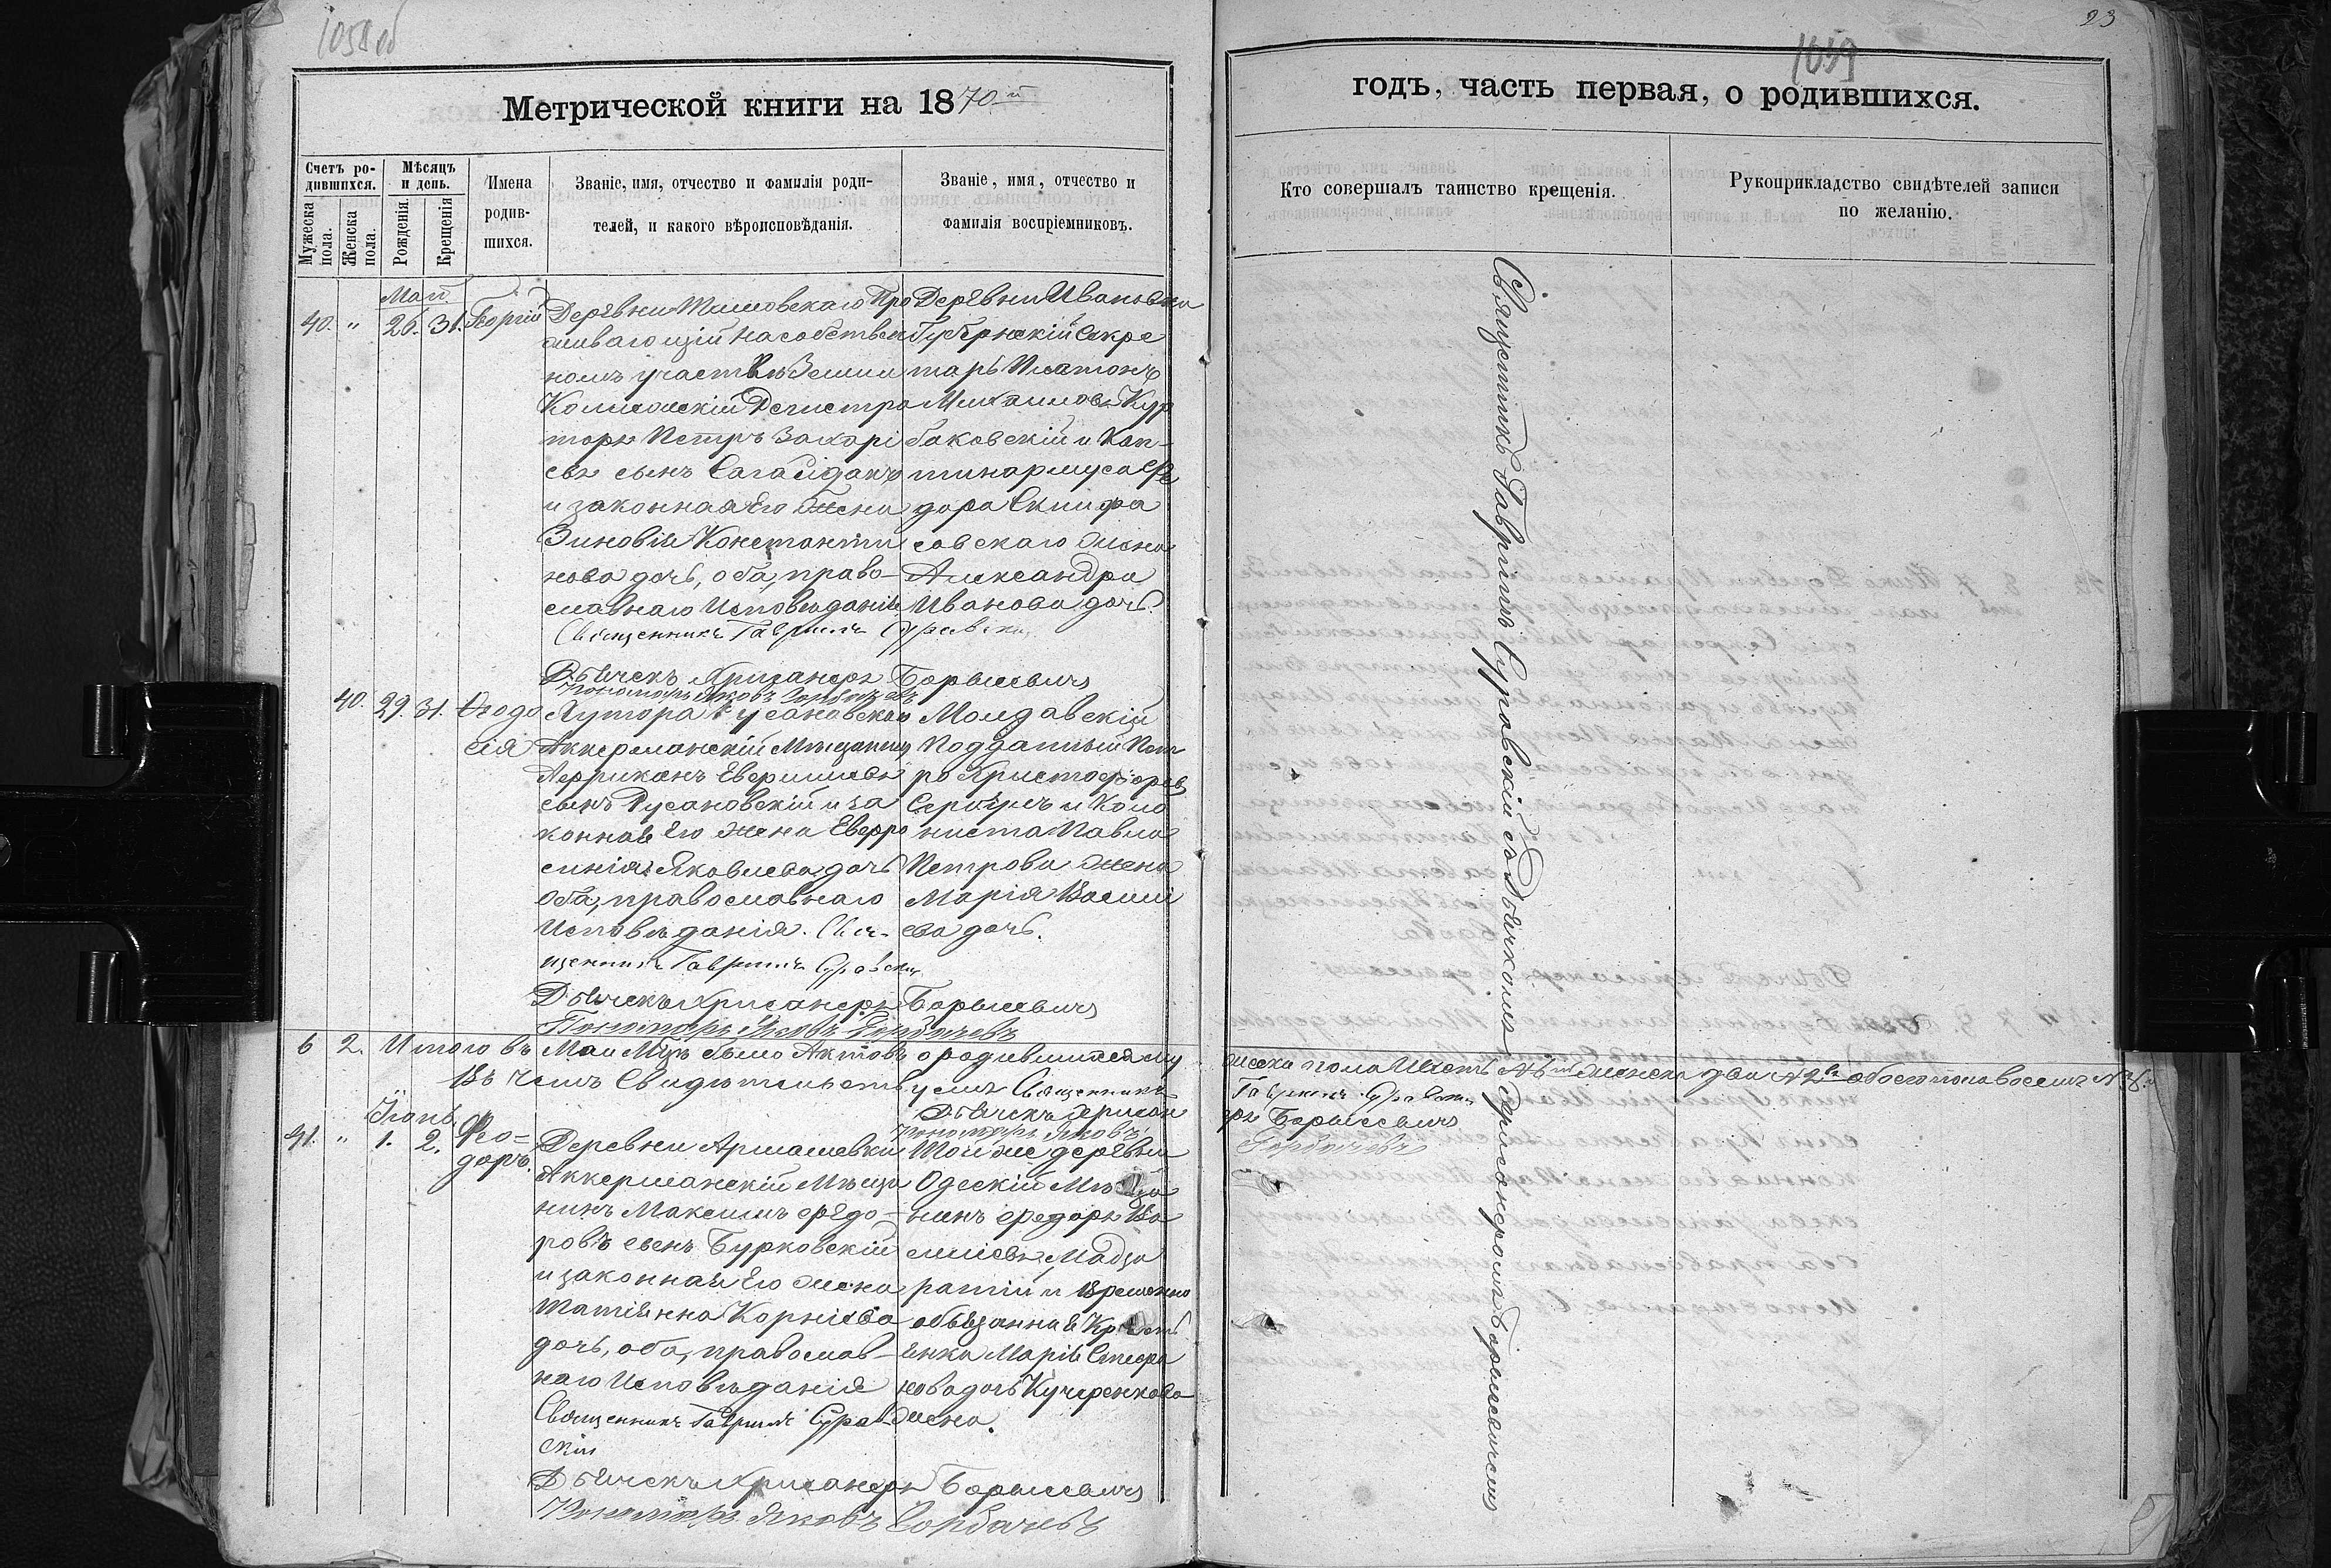 1058 об
Метрической книги на 1870 й
Счетъ ро-
дившихся.
Мужеска пола.
Женска пола.
Мѣсяцъ
и день.
Рожденія.
Крещенія
Имена
родив-
шихся.
Званіе, имя, отчество и фамилія роди-
телей, и какого вѣроисповѣданія.
Званіе, имя, отчество и
фамилія воспріемниковъ.
Май.
40. " 26. 31. Георгій
Деревни
шивающій на собствен
номъ участкѣ земли
Колижскій Регистра
торъ Петръ Захарі
евъ сынъ Сагайдакъ
и законная Его жена
Зиновія Константи
нова дочь, оба, право-
славнаго Исповѣданія
Священникъ Гавриилъ Суравскій
Деревни Ивановки
Губернскій Секре
тарь Платонъ
Михаиловъ Кур
баковскій и Кап-
тинармуса Фе
дора Скиифа
совскаго жена
Александра
Иванова дочь.
Дьячекъ Хрисанфъ Борышевичъ
Пономарь Яковъ Горбачевъ
40. 29. 31. Ѳеодо
сія
Хутора Русановскаго
Аккерманскій Мѣщанинъ
Африканъ
сынъ Русановскій и за
конная Его жена Евфро
синія Яковлева дочь
Оба, православнаго
Исповѣданія. Свя-
щенникъ Гавриилъ Суравскій
Молдавскій
Подданный Пет
ро Христофоровъ
и Коло
ниста Павла
Петрова жена
Марія Васили
ева дочь.
Дьячекъ Хрисанфъ Борышевичъ
Пономарь Яковъ Горбачевъ
6 2. Итого въ Маи Мцѣ было Актовъ о родившихся му
Въ чемъ Свидѣтельствуемъ Священникъ
Дьячекъ Хрисан
Пономарь Яковъ
Іюнь.
41. " 1. 2. Ѳео=
доръ.
Деревни Армашевки
Аккерманскій Мѣща
нинъ Максимъ Ѳедо-
ровъ сынъ Бурковскій
и законная Его жена
Татіянна Корніева
дочь, оба, православ-
наго Исповѣданія
Священникъ Гавриилъ Сурав
скій
Той же деревни
Одескій Мѣща
нинъ Ѳедоръ Ва
силіевъ Мадза
ратій и Временно
обязанная Кресть
янка Марія Стефа
нова дочь Кучеренкова
жена.
Дьячекъ Хрисанфъ Борышевичъ
Пономарь Яковъ Горбачевъ
23
1059
годъ, часть первая, о родившихся.
Кто совершалъ таинство крещенія.
Рукоприкладство свидѣтелей записи
по желанію.
Священникъ Гавриилъ Суравскій съ Дьячкомъ Хрисанфомъ Борышевичемъ
жеска пола Шесть № 6й женска два № 2й обоего пола восемь № 8й.
Гавриилъ Суравскій
фъ Борышевичъ
Горбачевъ